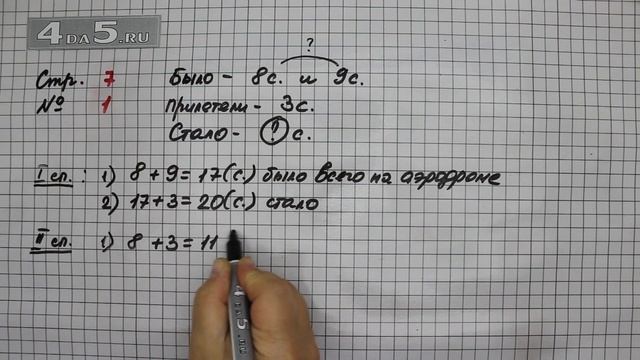 4DA5.RU
?
Стр. 7 Было - 8с. и 9с.
№ 1 Прилетели - 3с.
Стало - ? с.
I сп.: 1) 8 + 9 = 17 (с.) было всего на аэродроме
2) 17 + 3 = 20 (с.) стало
II сп. 1) 8 + 3 = 11
4 DA 5